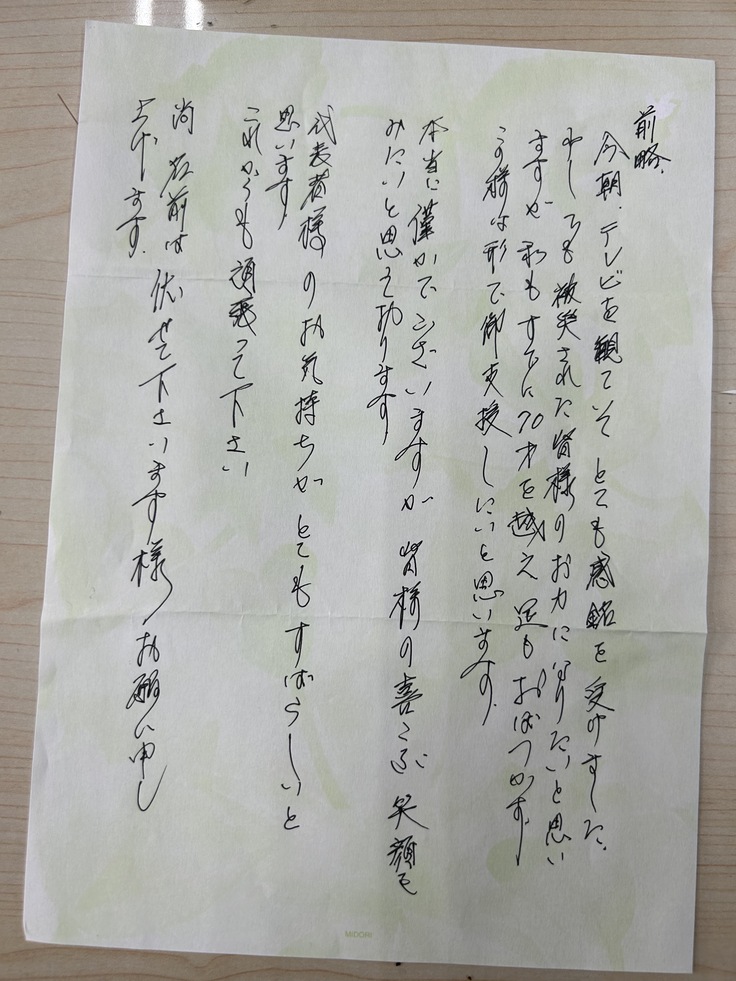 前略、
今朝、テレビを観ていて とても感銘を受けました。
少しでも被災された皆様のお力になりたいと思い
ますが 私もすでに70才を越え 足もおぼつかず、
この様な形で御支援したいと思います。
本当に僅かでございますが 皆様の喜こぶ 笑顔を
みたいと思って居ります
代表者様のお気持ちがとてもすばらしいと
思います。
これからも頑張って下さい
尚 名前は 伏せて下さいます様 お願い申し
上げます。
MIDORI